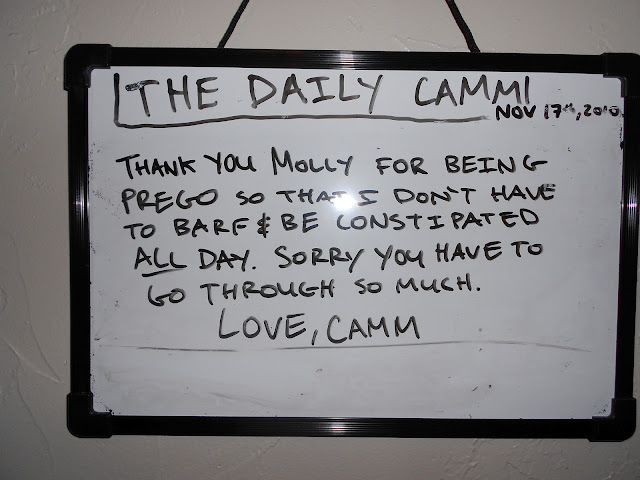 THE DAILY CAMMI
NOV 17th, 2010
THANK YOU MOLLY FOR BEING
PREGO SO THAT I DON'T HAVE
TO BARF & BE CONSTIPATED
ALL DAY. SORRY YOU HAVE TO
GO THROUGH SO MUCH.
LOVE, CAMM